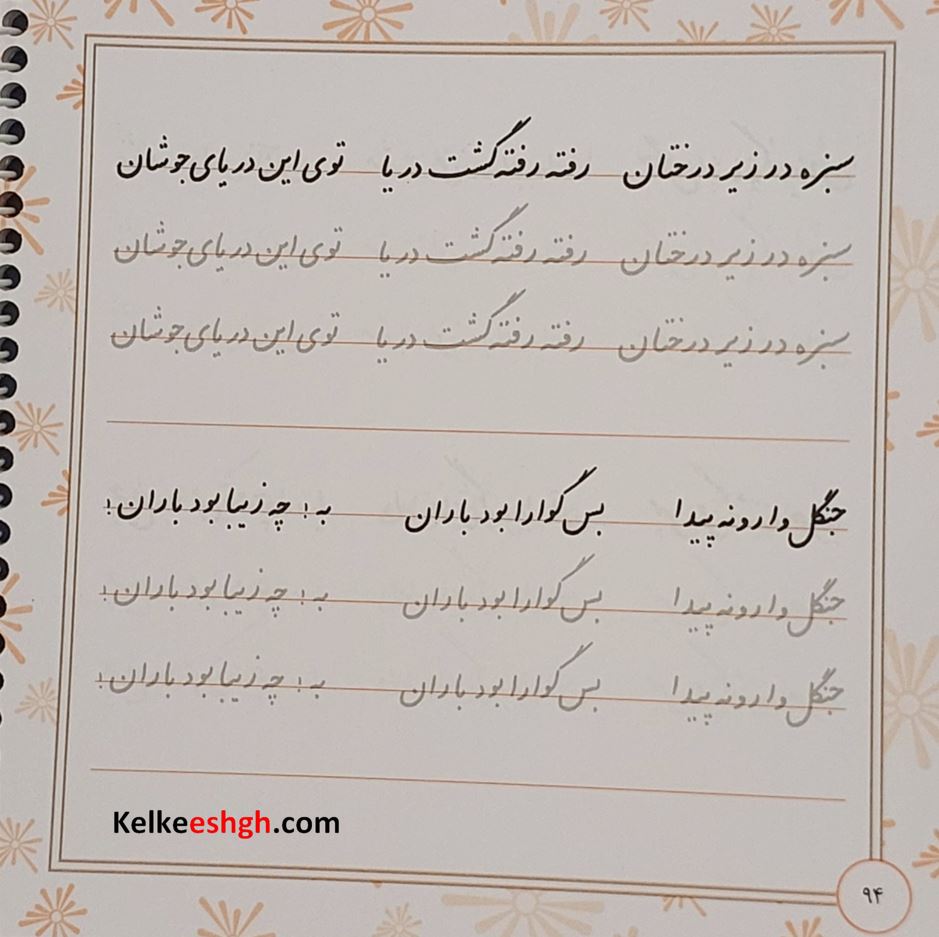 سبزه در زیر درختان رفته رفته گشت دریا توی این دریای جوشان
سبزه در زیر درختان رفته رفته گشت دریا توی این دریای جوشان
سبزه در زیر درختان رفته رفته گشت دریا توی این دریای جوشان
جنگل وارونه پیدا بس گوارا بود باران به! چه زیبا بود باران!
جنگل وارونه پیدا بس گوارا بود باران به! چه زیبا بود باران!
جنگل وارونه پیدا بس گوارا بود باران به! چه زیبا بود باران!
Kelkeeshgh.com
۹۴